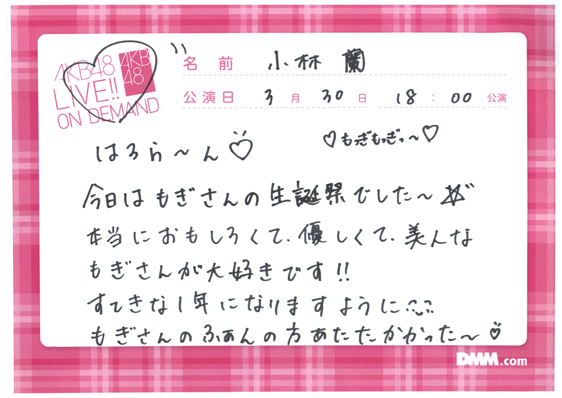 AKB48
LIVE!!
ON DEMAND
AKB
48
名前 小林 蘭
公演日 3月30日 18:00公演
♡もぎもぎっ〜♡
はろら〜ん♡
今日はもぎさんの生誕祭でした〜
本当におもしろくて、優しくて、美人な
もぎさんが大好きです!!
すてきな1年になりますように
もぎさんのふぁんの方あたたかかった〜
DMM.com